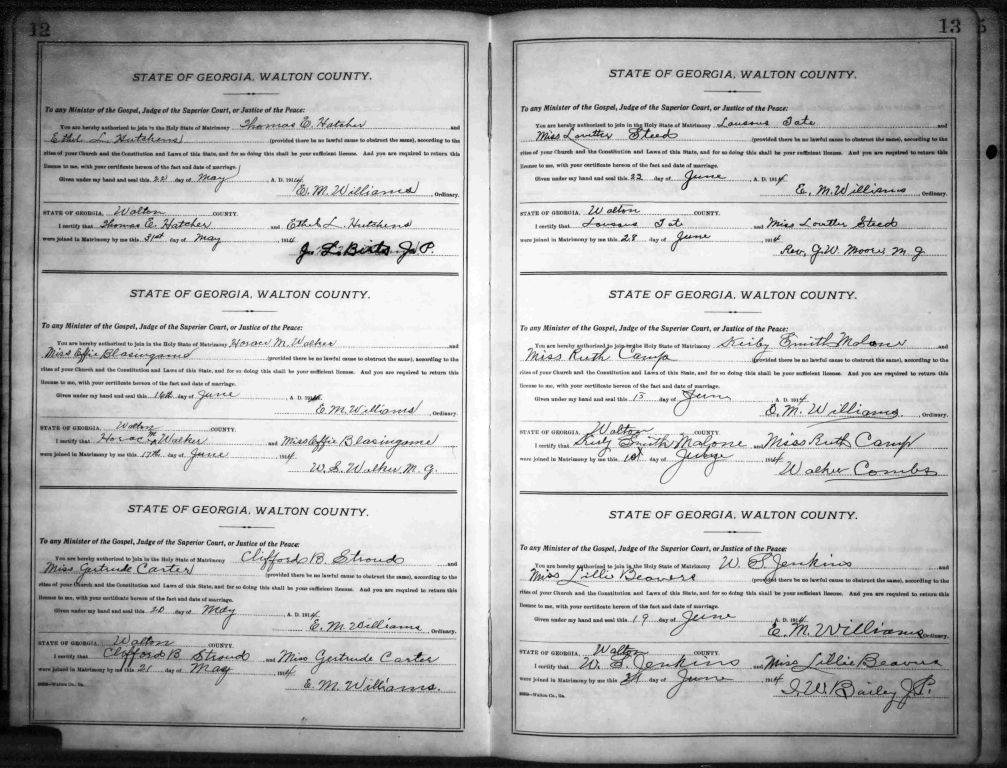 12
STATE OF GEORGIA, WALTON COUNTY.
To any Minister of the Gospel, Judge of the Superior Court, or Justice of the Peace:
You are hereby authorized to join in the Holy State of Matrimony Thomas E. Hatcher and
Ethel L. Hutchens (provided there be no lawful cause to obstruct the same), according to the
rites of your Church and the Constitution and Laws of this State, and for so doing this shall be your sufficient license. And you are required to return this
license to me, with your certificate hereon of the fact and date of marriage.
Given under my hand and seal this 20 day of May A. D. 1914
E. M. Williams Ordinary.
STATE OF GEORGIA, Walton COUNTY.
I certify that Thomas E. Hatcher and Ethel L. Hutchens
were joined in Matrimony by me this 31st day of May 1914
J. L. Birts J. P.
STATE OF GEORGIA, WALTON COUNTY.
To any Minister of the Gospel, Judge of the Superior Court, or Justice of the Peace:
You are hereby authorized to join in the Holy State of Matrimony Horace M. Walker and
Miss Effie Blasingame (provided there be no lawful cause to obstruct the same), according to the
rites of your Church and the Constitution and Laws of this State, and for so doing this shall be your sufficient license. And you are required to return this
license to me, with your certificate hereon of the fact and date of marriage.
Given under my hand and seal this 16th day of June A. D. 1914
E. M. Williams Ordinary.
STATE OF GEORGIA, Walton COUNTY.
I certify that Horace M. Walker and Miss Effie Blasingame
were joined in Matrimony by me this 17th day of June 1914
W. S. Walker M. G.
STATE OF GEORGIA, WALTON COUNTY.
To any Minister of the Gospel, Judge of the Superior Court, or Justice of the Peace:
You are hereby authorized to join in the Holy State of Matrimony Clifford B. Stroud and
Miss Gertrude Carter (provided there be no lawful cause to obstruct the same), according to the
rites of your Church and the Constitution and Laws of this State, and for so doing this shall be your sufficient license. And you are required to return this
license to me, with your certificate hereon of the fact and date of marriage.
Given under my hand and seal this 20 day of May A. D. 1914
E. M. Williams Ordinary.
STATE OF GEORGIA, Walton COUNTY.
I certify that Clifford B. Stroud and Miss Gertrude Carter
were joined in Matrimony by me this 21 day of May 1914
E. M. Williams.
Walton Co., Ga.
13
STATE OF GEORGIA, WALTON COUNTY.
To any Minister of the Gospel, Judge of the Superior Court, or Justice of the Peace:
You are hereby authorized to join in the Holy State of Matrimony Lousous Tate and
Miss Loutter Steed (provided there be no lawful cause to obstruct the same), according to the
rites of your Church and the Constitution and Laws of this State, and for so doing this shall be your sufficient license. And you are required to return this
license to me, with your certificate hereon of the fact and date of marriage.
Given under my hand and seal this 23 day of June A. D. 1914
E. M. Williams Ordinary.
STATE OF GEORGIA, Walton COUNTY.
I certify that Lousous Tate and Miss Loutter Steed
were joined in Matrimony by me this 28 day of June 1914
Rev. J. W. Moore M. G.
STATE OF GEORGIA, WALTON COUNTY.
To any Minister of the Gospel, Judge of the Superior Court, or Justice of the Peace:
You are hereby authorized to join in the Holy State of Matrimony Kirby Smith Malone and
Miss Ruth Camp (provided there be no lawful cause to obstruct the same), according to the
rites of your Church and the Constitution and Laws of this State, and for so doing this shall be your sufficient license. And you are required to return this
license to me, with your certificate hereon of the fact and date of marriage.
Given under my hand and seal this day of June A. D. 1914
E. M. Williams Ordinary.
STATE OF GEORGIA, Walton COUNTY.
I certify that Smith Malone and Miss Ruth Camp
were joined in Matrimony by me this day of June 1914
Walker Combs
STATE OF GEORGIA, WALTON COUNTY.
To any Minister of the Gospel, Judge of the Superior Court, or Justice of the Peace:
You are hereby authorized to join in the Holy State of Matrimony W. S. Jenkins and
Miss Lillie Beavers (provided there be no lawful cause to obstruct the same), according to the
rites of your Church and the Constitution and Laws of this State, and for so doing this shall be your sufficient license. And you are required to return this
license to me, with your certificate hereon of the fact and date of marriage.
Given under my hand and seal this 19 day of June A. D. 1914
E. M. Williams Ordinary.
STATE OF GEORGIA, Walton COUNTY.
I certify that W. S. Jenkins and Miss Lillie Beavers
were joined in Matrimony by me this 21 day of June 1914
J. W. Bailey J. P.
Walton Co., Ga.